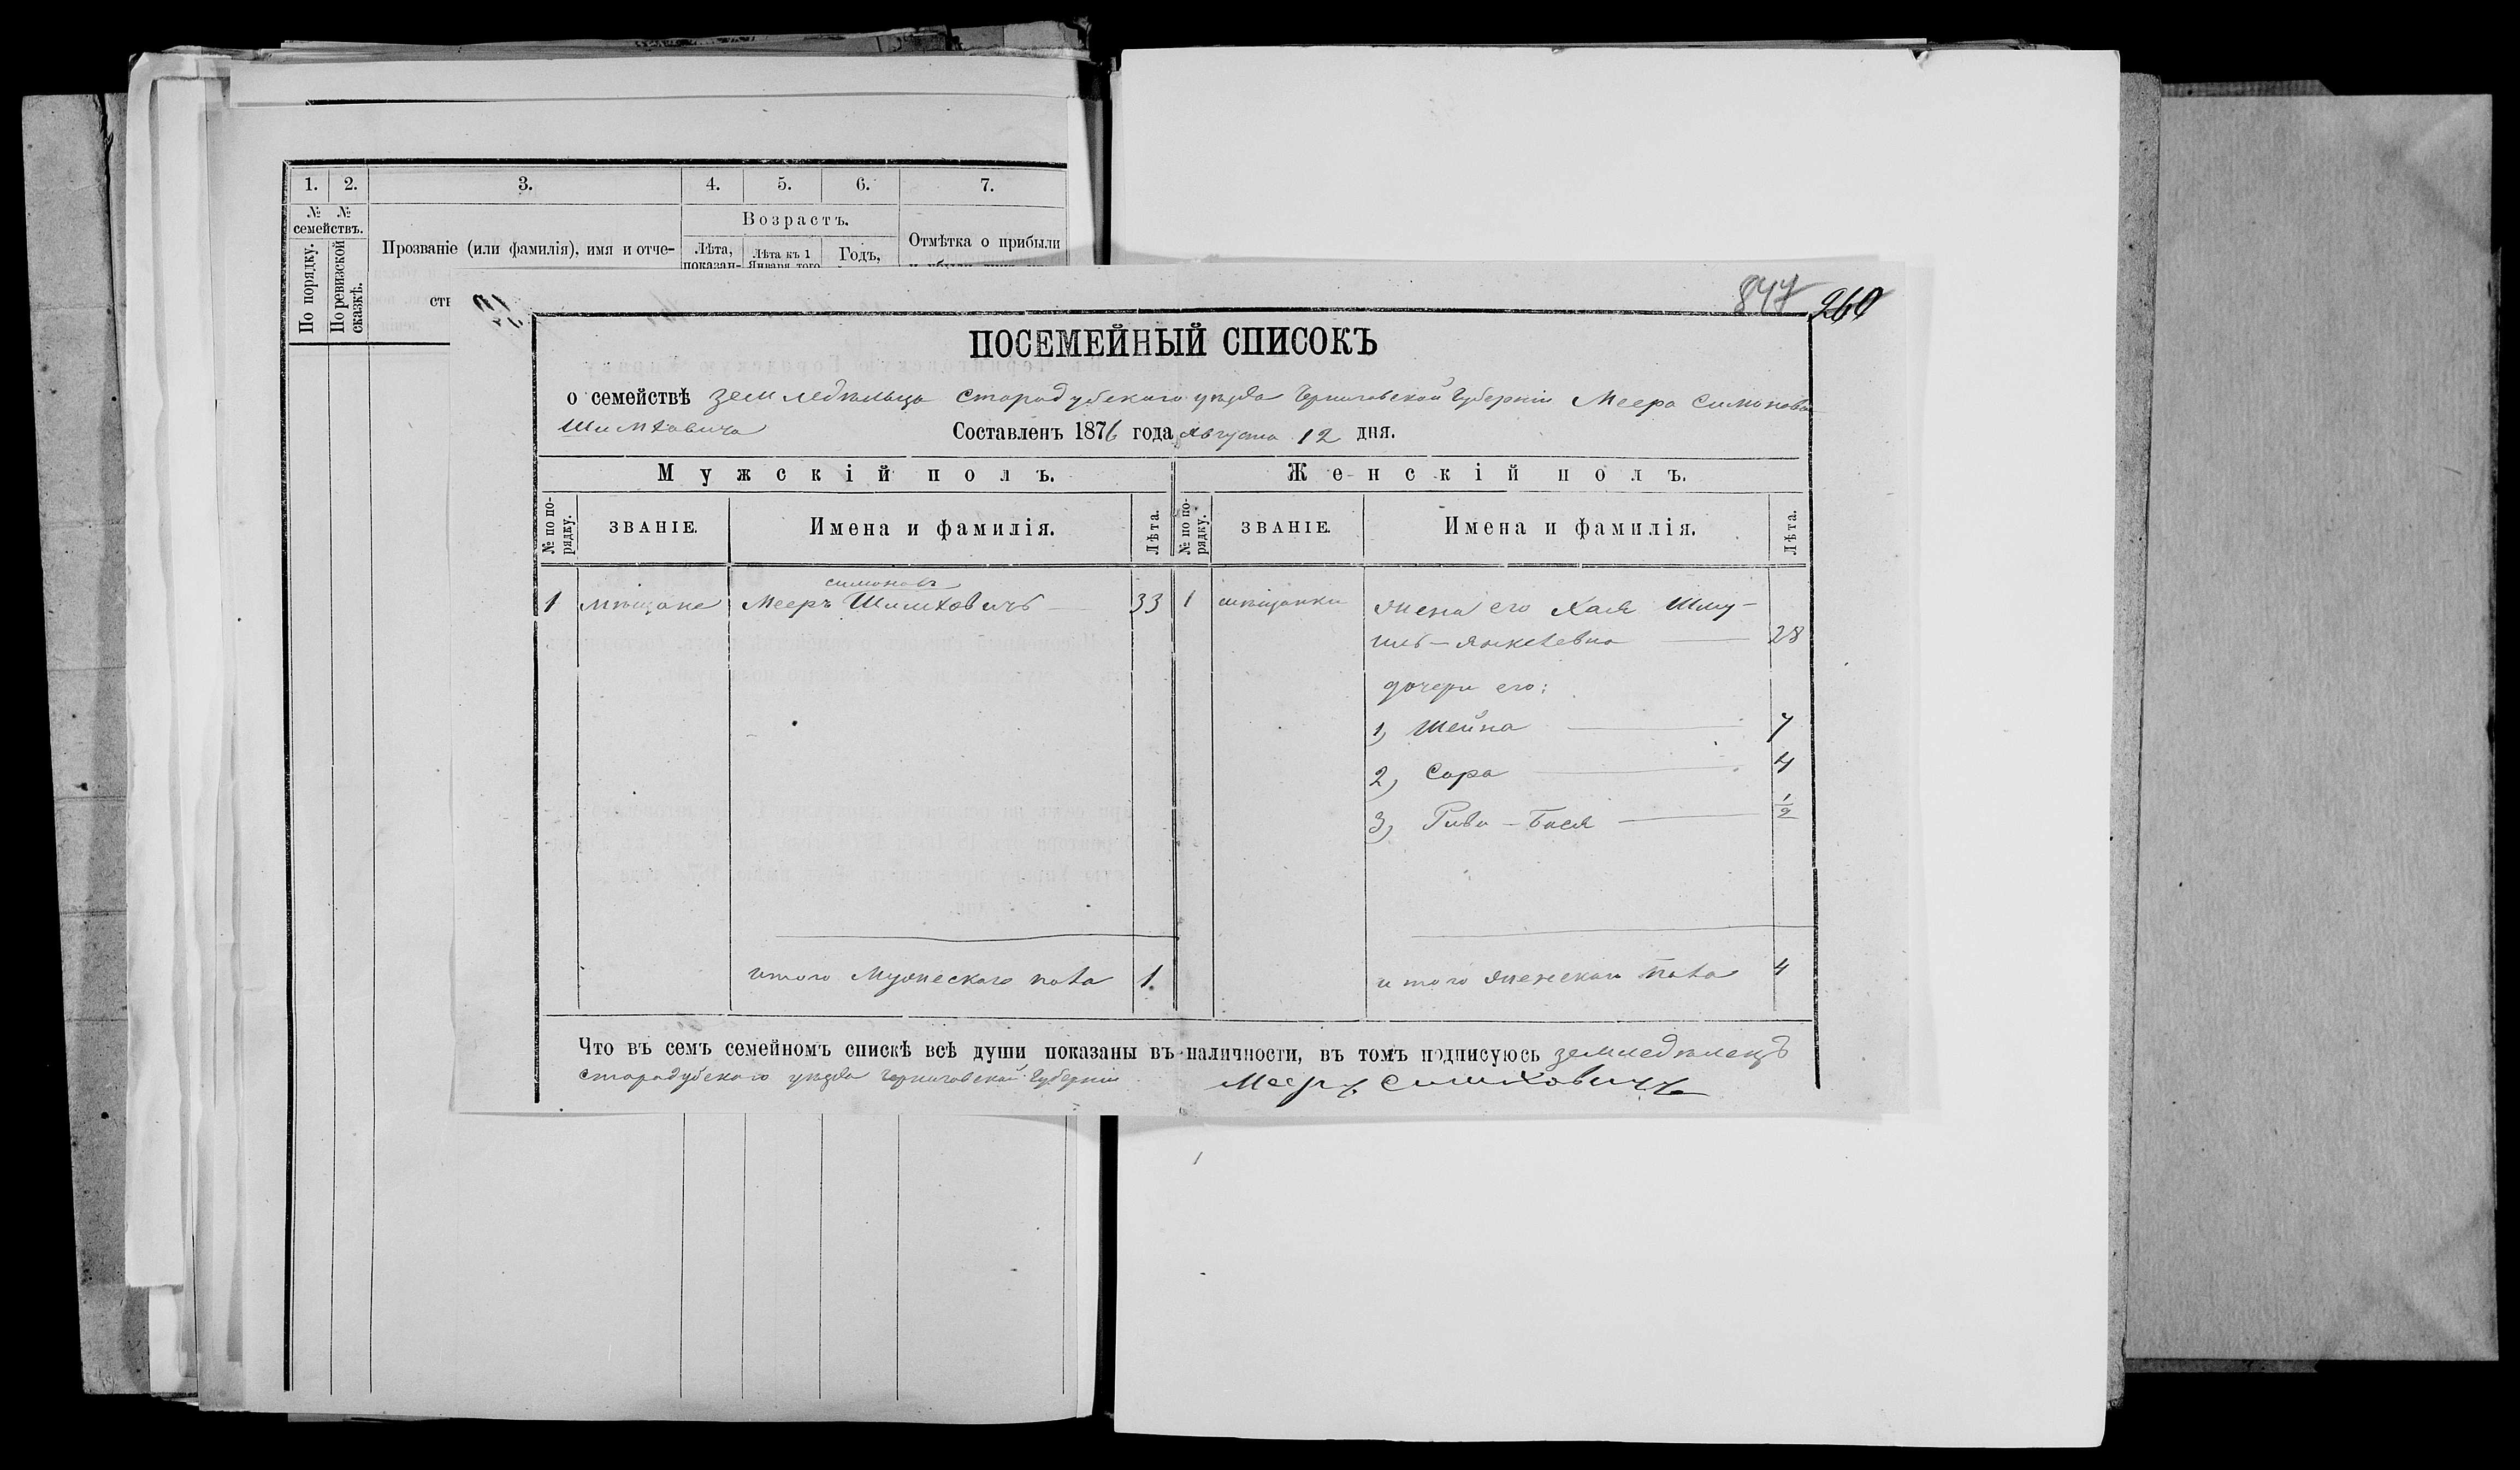 1. 2. 3. 4. 5. 6. 7.
№ № семействъ.
По порядку.
По ревизской сказкѣ.
Прозваніе (или фамилія), имя и отче-
ств
Возрастъ.
Лѣта, показан-
Лѣта къ 1 Января того
Годъ,
Отмѣтка о прибыли
847 260
ПОСЕМЕЙНЫЙ СПИСОКЪ
о семействѣ земледѣльца Стародубскаго уѣзда Черниговской Губерніи Меера Симонова
Шимховича
Составленъ 1876 года Августа 12 дня.
Мужскій полъ. Женскій полъ.
№ по по-рядку. ЗВАНІЕ. Имена и фамилія. Лѣта. № по по-рядку. ЗВАНІЕ. Имена и фамилія. Лѣта.
симоновъ
1 мѣщане Мееръ Шимховичъ 33 1 мѣщанки жена его Хася Шму-
иль-Янкелевна 28
дочери его:
1, Шейна 7
2, Сара 4
3, Рива-Бася 1/2
итого Мужескаго пола 1 итого женскаго пола 4
Что въ семъ семейномъ спискѣ всѣ души показаны въ наличности, въ томъ подписуюсь земледѣлецъ
Стародубскаго уѣзда Черниговской Губерніи Мееръ Симховичъ